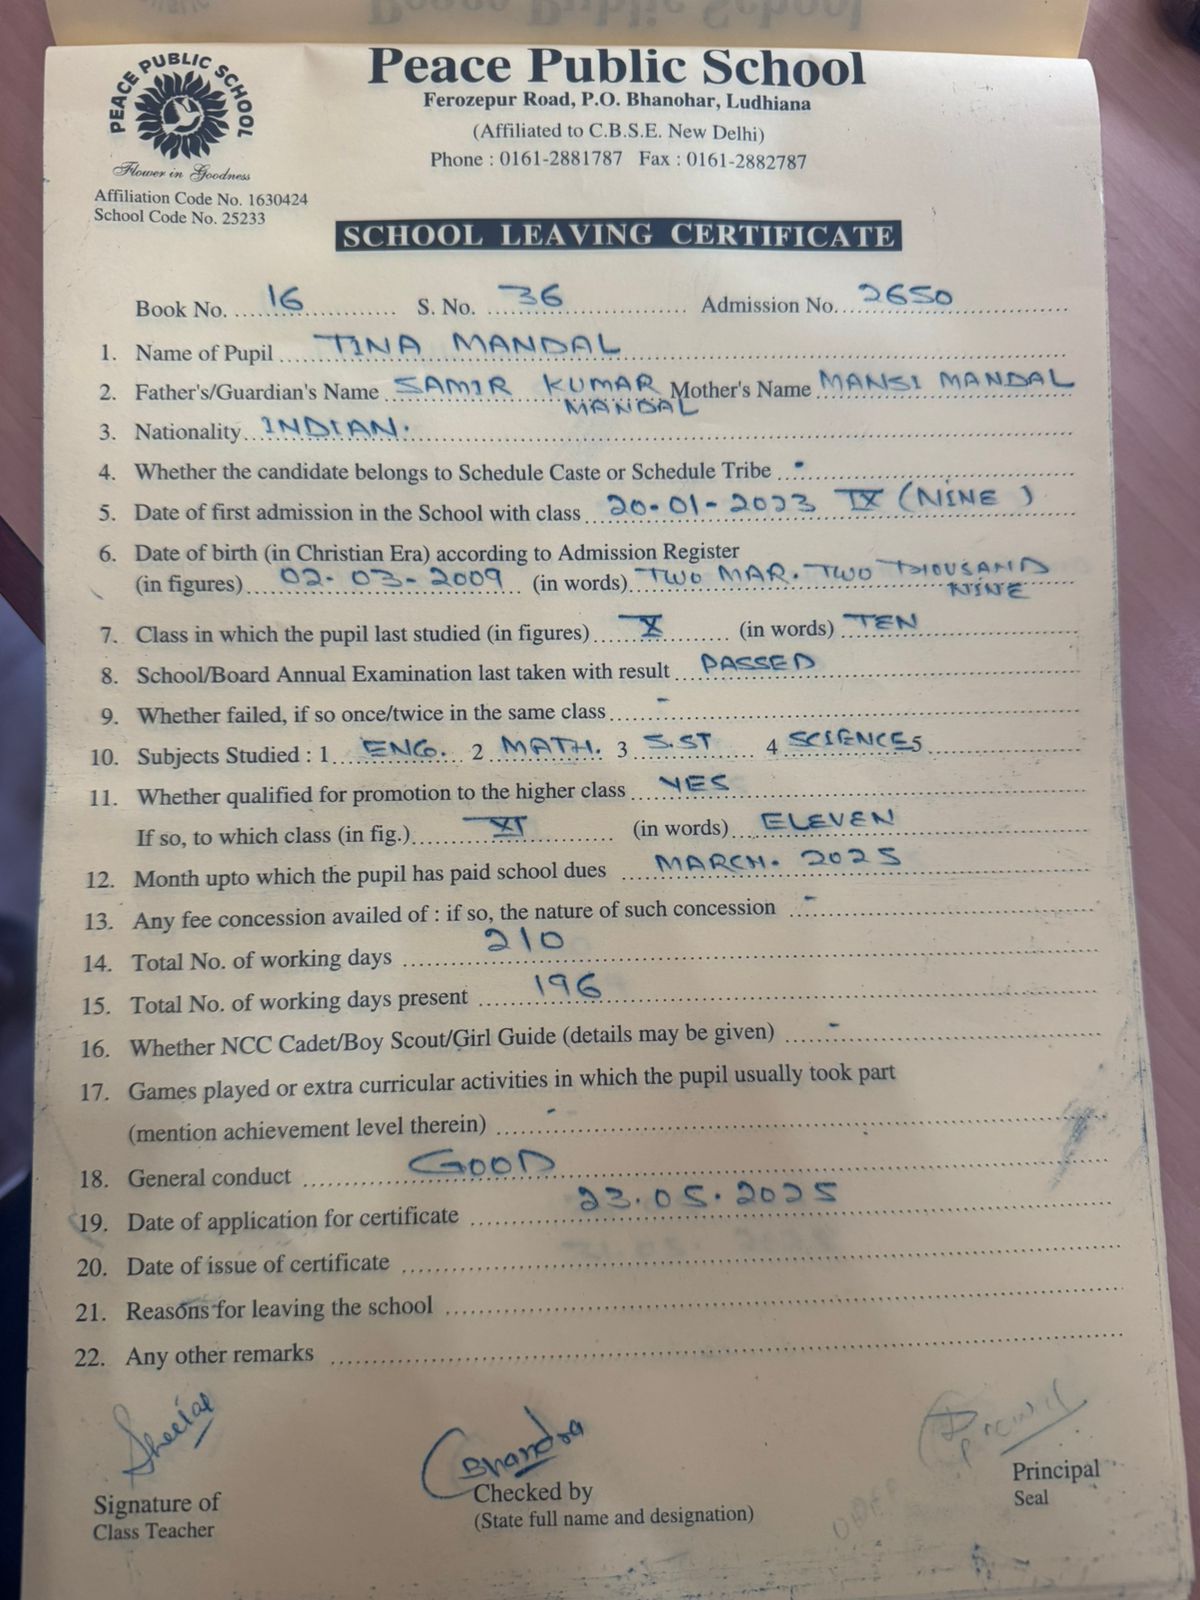 PEACE PUBLIC SCHOOL
Flower in Goodness
Affiliation Code No. 1630424
School Code No. 25233
Peace Public School
Ferozepur Road, P.O. Bhanohar, Ludhiana
(Affiliated to C.B.S.E. New Delhi)
Phone : 0161-2881787 Fax : 0161-2882787
SCHOOL LEAVING CERTIFICATE
Book No. 16 S. No. 36 Admission No. 2650
1. Name of Pupil TINA MANDAL
2. Father's/Guardian's Name SAMIR KUMAR MANDAL Mother's Name MANSI MANDAL
3. Nationality INDIAN.
4. Whether the candidate belongs to Schedule Caste or Schedule Tribe -
5. Date of first admission in the School with class 20-01-2023 IX (NINE)
6. Date of birth (in Christian Era) according to Admission Register
(in figures) 02-03-2009 (in words) TWO MAR. TWO THOUSAND NINE
7. Class in which the pupil last studied (in figures) X (in words) TEN
8. School/Board Annual Examination last taken with result PASSED
9. Whether failed, if so once/twice in the same class -
10. Subjects Studied : 1 ENG. 2 MATH. 3 S.ST 4 SCIENCE 5
11. Whether qualified for promotion to the higher class YES
If so, to which class (in fig.) XI (in words) ELEVEN
12. Month upto which the pupil has paid school dues MARCH. 2025
13. Any fee concession availed of : if so, the nature of such concession -
14. Total No. of working days 210
15. Total No. of working days present 196
16. Whether NCC Cadet/Boy Scout/Girl Guide (details may be given) -
17. Games played or extra curricular activities in which the pupil usually took part
(mention achievement level therein) -
18. General conduct GOOD
19. Date of application for certificate 23.05.2025
20. Date of issue of certificate
21. Reasons for leaving the school
22. Any other remarks
Sheetal
Bhandra
Signature of
Class Teacher
Checked by
(State full name and designation)
Principal
Seal